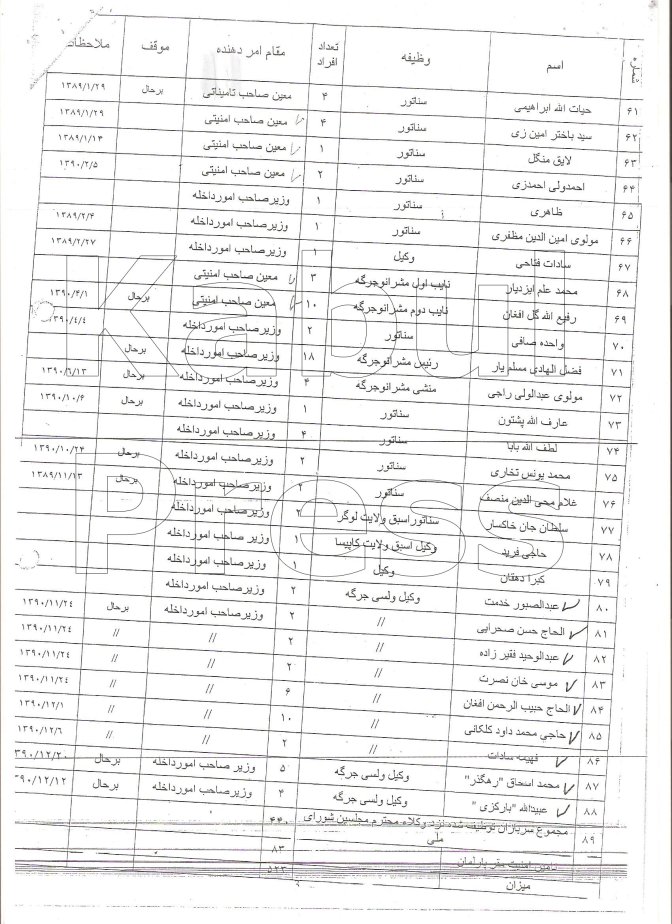 شماره اسم وظیفه تعداد افراد مقام امر دهنده موقف ملاحظات
۶۱ حیات الله ابراهیمی سناتور ۴ معین صاحب تامیناتی برحال ۱۳۸۹/۱/۲۹
۶۲ سید باختر امین زی سناتور ۴ معین صاحب امنیتی ۱۳۸۹/۱/۲۹
۶۳ لایق منگل سناتور ۱ معین صاحب امنیتی ۱۳۸۹/۱/۱۴
۶۴ احمدولی احمدزی سناتور ۲ معین صاحب امنیتی ۱۳۹۰/۲/۵
۶۵ ظاهری سناتور ۱ وزیرصاحب امورداخله
۶۶ مولوی امین الدین مظفری سناتور ۱ وزیرصاحب امورداخله ۱۳۸۹/۲/۴
۶۷ سادات فتاحی وکیل ۱ وزیرصاحب امورداخله ۱۳۸۹/۲/۲۷
۶۸ محمد علم ایزدیار نایب اول مشرانوجرگه ۳ معین صاحب امنیتی
۶۹ رفیع الله گل افغان نایب دوم مشرانوجرگه ۱۰ معین صاحب امنیتی برحال ۱۳۹۰/۴/۱
۷۰ واحده صافی سناتور ۲ وزیرصاحب امورداخله ۱۳۹۰/٤/٤
۷۱ فضل الهادی مسلم یار رئیس مشرانوجرگه ۱۸ وزیرصاحب امورداخله برحال
۷۲ مولوی عبدالولی راجی منشی مشرانوجرگه ۴ وزیرصاحب امورداخله برحال ۱۳۹۰/۶/۱۳
۷۳ عارف الله پشتون سناتور ۱ وزیرصاحب امورداخله برحال ۱۳۹۰/۱۰/۶
۷۴ لطف الله بابا سناتور ۴ وزیرصاحب امورداخله
۷۵ محمد یونس تخاری سناتور ۲ وزیرصاحب امورداخله برحال ۱۳۹۰/۱۰/۲۴
۷۶ غلام محی الدین منصف سناتور ۲ وزیرصاحب امورداخله برحال ۱۳۸۹/۱۱/۱۳
۷۷ سلطان جان خاکسار سناتور اسبق ولایت لوگر ۲ وزیرصاحب امورداخله
۷۸ حاجی فرید وکیل اسبق ولایت کاپیسا ۱ وزیرصاحب امورداخله
۷۹ کبرا دهقان وکیل ۱ وزیرصاحب امورداخله
۸۰ عبدالصبور خدمت وکیل ولسی جرگه ۲ وزیرصاحب امورداخله
۸۱ الحاج حسن صحرایی // ۲ وزیرصاحب امورداخله برحال ۱۳۹۰/۱۱/۲٤
۸۲ عبدالوحید فقیر زاده // ۲ // // ۱۳۹۰/۱۱/۲٤
۸۳ موسی خان نصرت // ۲ // // ۱۳۹۰/۱۱/۲٤
۸۴ الحاج حبیب الرحمن افغان // ۶ // // ۱۳۹۰/۱۱/۲٤
۸۵ حاجی محمد داود کلکانی // ۱۰ // // ۱۳۹۰/۱۲/۱
۸۶ فهیمه سادات // ۲ // // ۱۳۹۰/۱۲/٦
۸۷ محمد اسحاق "رهگذر" وکیل ولسی جرگه ۵ وزیر صاحب امورداخله برحال ۳۹۰/۱۲/۲۰
۸۸ عبیدالله "بارکزی" وکیل ولسی جرگه ۴ وزیرصاحب امورداخله برحال ۹۰/۱۲/۱۲
۸۹ مجموع سربازان توظیف شده نزد وکلاء محترم مجلسین شورای ملی ۴۴۰
تامین امنیت مقر پارلمان ۸۳
میزان ۵۲۳
Kabul
Press